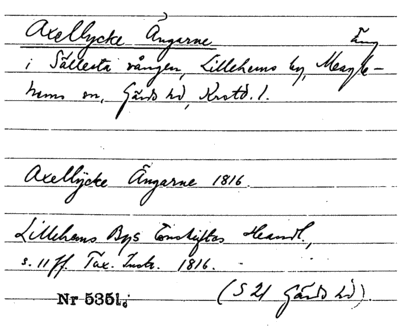 Axellycke Ängarne Äng
i Sällesta vången, Lillehems by, Meagle-
hems sn, Gärds hd, Krstd. l.
Axellÿcke Ängarne 1816.
Lillehems Bys Enskiftes Handl.,
s. 11 ff. Tax. Instr. 1816.
Nr 5351. (S 21 Gärds hd).